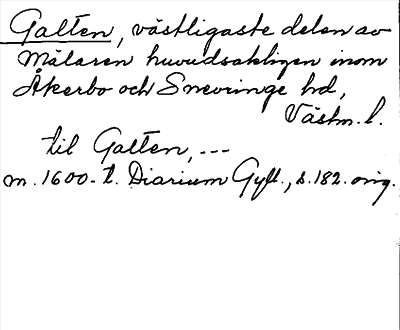 Galten, västligaste delen av
Mälaren huvudsakligen inom
Åkerbo och Snevringe hd,
Västm. l.
til Galten, ---
m. 1600-t. Diarium Gyll., s. 182. orig.